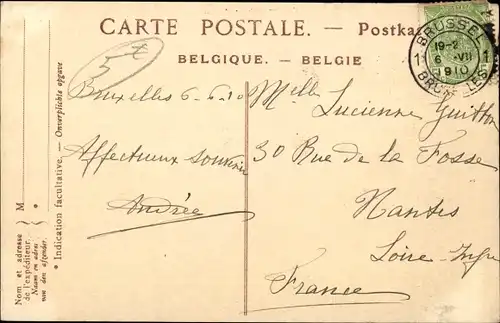 CARTE POSTALE. — Postkaart
BELGIQUE. — BELGIE
BRUSSEL
19-2
1 6 VII 1
1910
BRUXELLES
Bruxelles 6.6.10
Affectueux souvenir
Andrée
Mlle Lucienne Guitton
30 Rue de la Fosse
Nantes
Loire-Infre
France
* Indication facultative. — Onverplichte opgave
M *
Nom et adresse
de l'expéditeur.
Naam en adres
van den afzender.